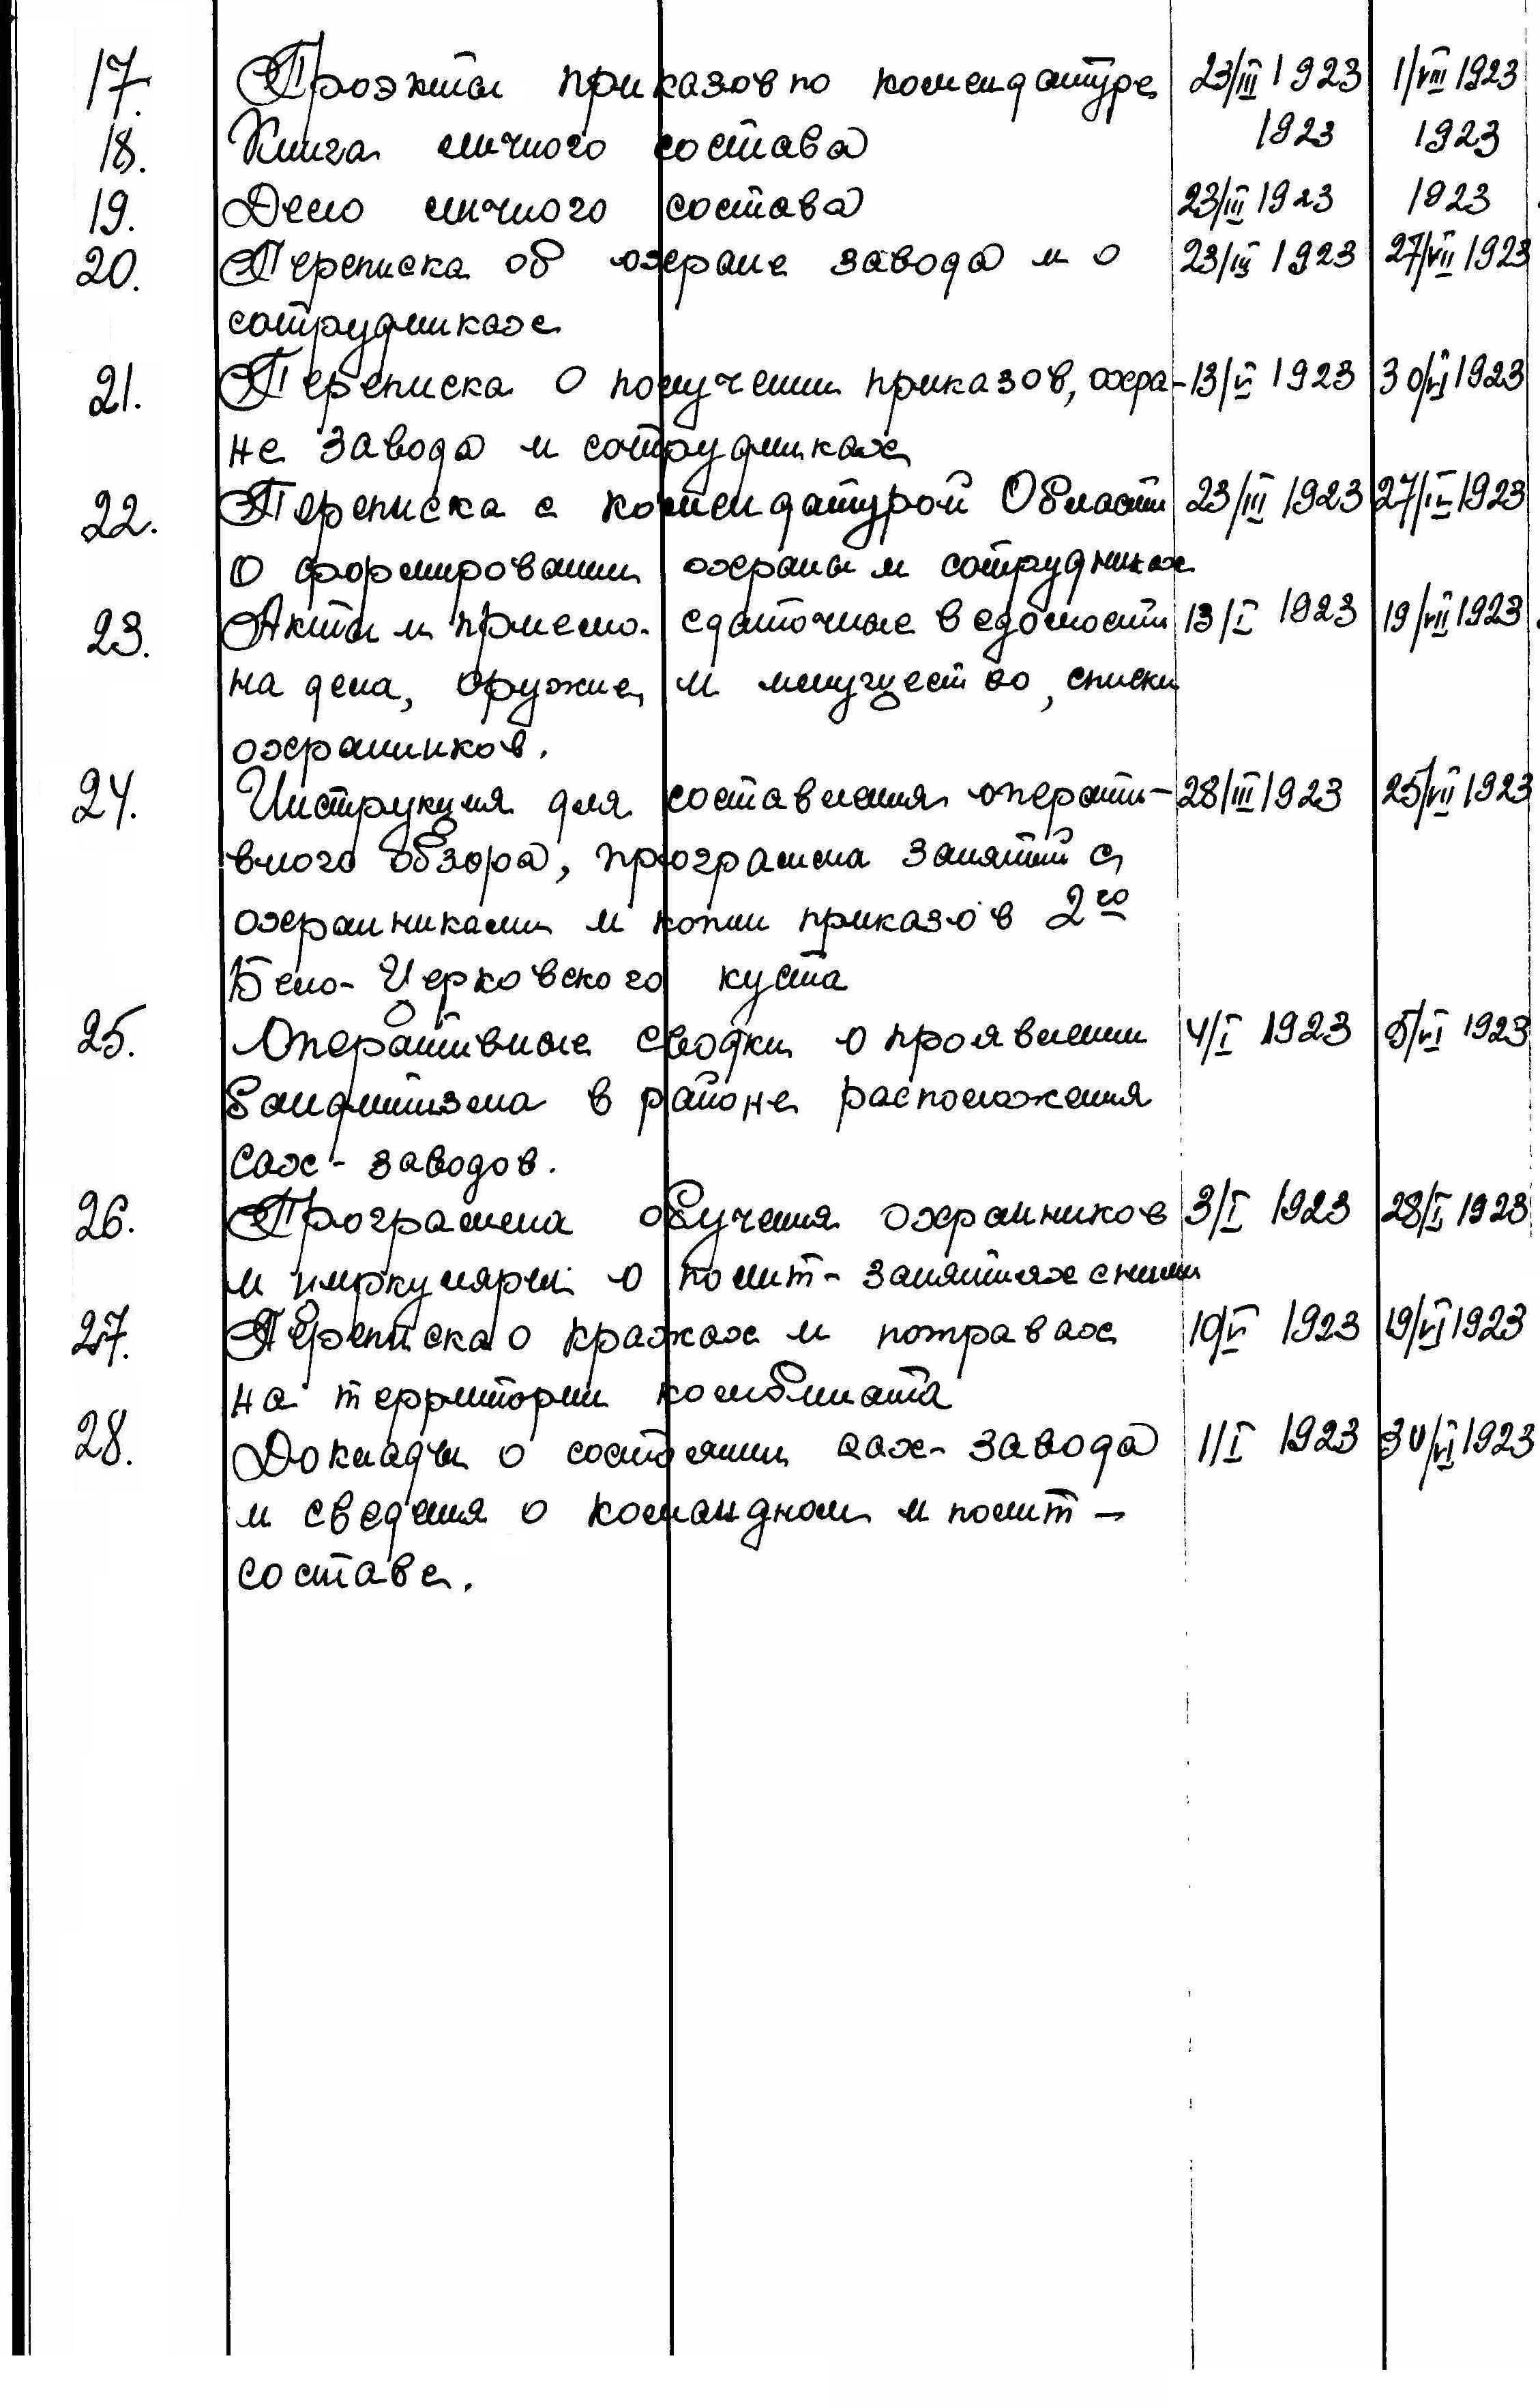 17. Проэкты приказов по комендатуре 23/III 1923 1/VIII 1923
18. Книга личного состава 1923 1923
19. Дело личного состава 23/III 1923 1923
20. Переписка об охране завода и о 23/III 1923 27/VII 1923
сотрудниках
21. Переписка о получении приказов, охра- 13/V 1923 30/VI 1923
не завода и сотрудниках
22. Переписка с комендатурой Области 23/III 1923 27/IV 1923
о формировании охраны и сотрудниках
23. Акты и приемо-сдаточные ведомости 13/I 1923 19/VII 1923
на дела, оружие, и имущество, списки
охранников.
24. Инструкция для составления операти- 28/III 1923 25/VII 1923
вного обзора, программа занятий с
охранниками и копии приказов 2го
Бело-Церковского куста
25. Оперативные сводки о проявлении 4/I 1923 5/VI 1923
бандитизма в районе расположения
сах-заводов.
26. Программа обучения охранников 3/I 1923 28/I 1923
и циркуляры о полит-занятиях с ними
27. Переписка о кражах и потравах 10/V 1923 19/VI 1923
на территории комбината
28. Доклады о состоянии сах-завода 1/I 1923 30/VI 1923
и сведения о командном и полит-
составе.